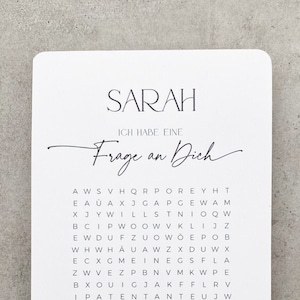 SARAH
ICH HABE EINE
Frage an Dich
A W S V H Q R P O R E Y H T
E A Ü A X J G A P G E W A M
X J Y W I L L S T N I O Q W
B C I P W O O W V K L I J Z
E W D U F Z U O W Ö E P O B
W H W H Ä U A W Z X D U W X
E C X G M E I N E G S F L A
Z W V E Z P B N V M K W P E
B X O U I G H J A L F O R L
I P A T E N T A N T E U J W